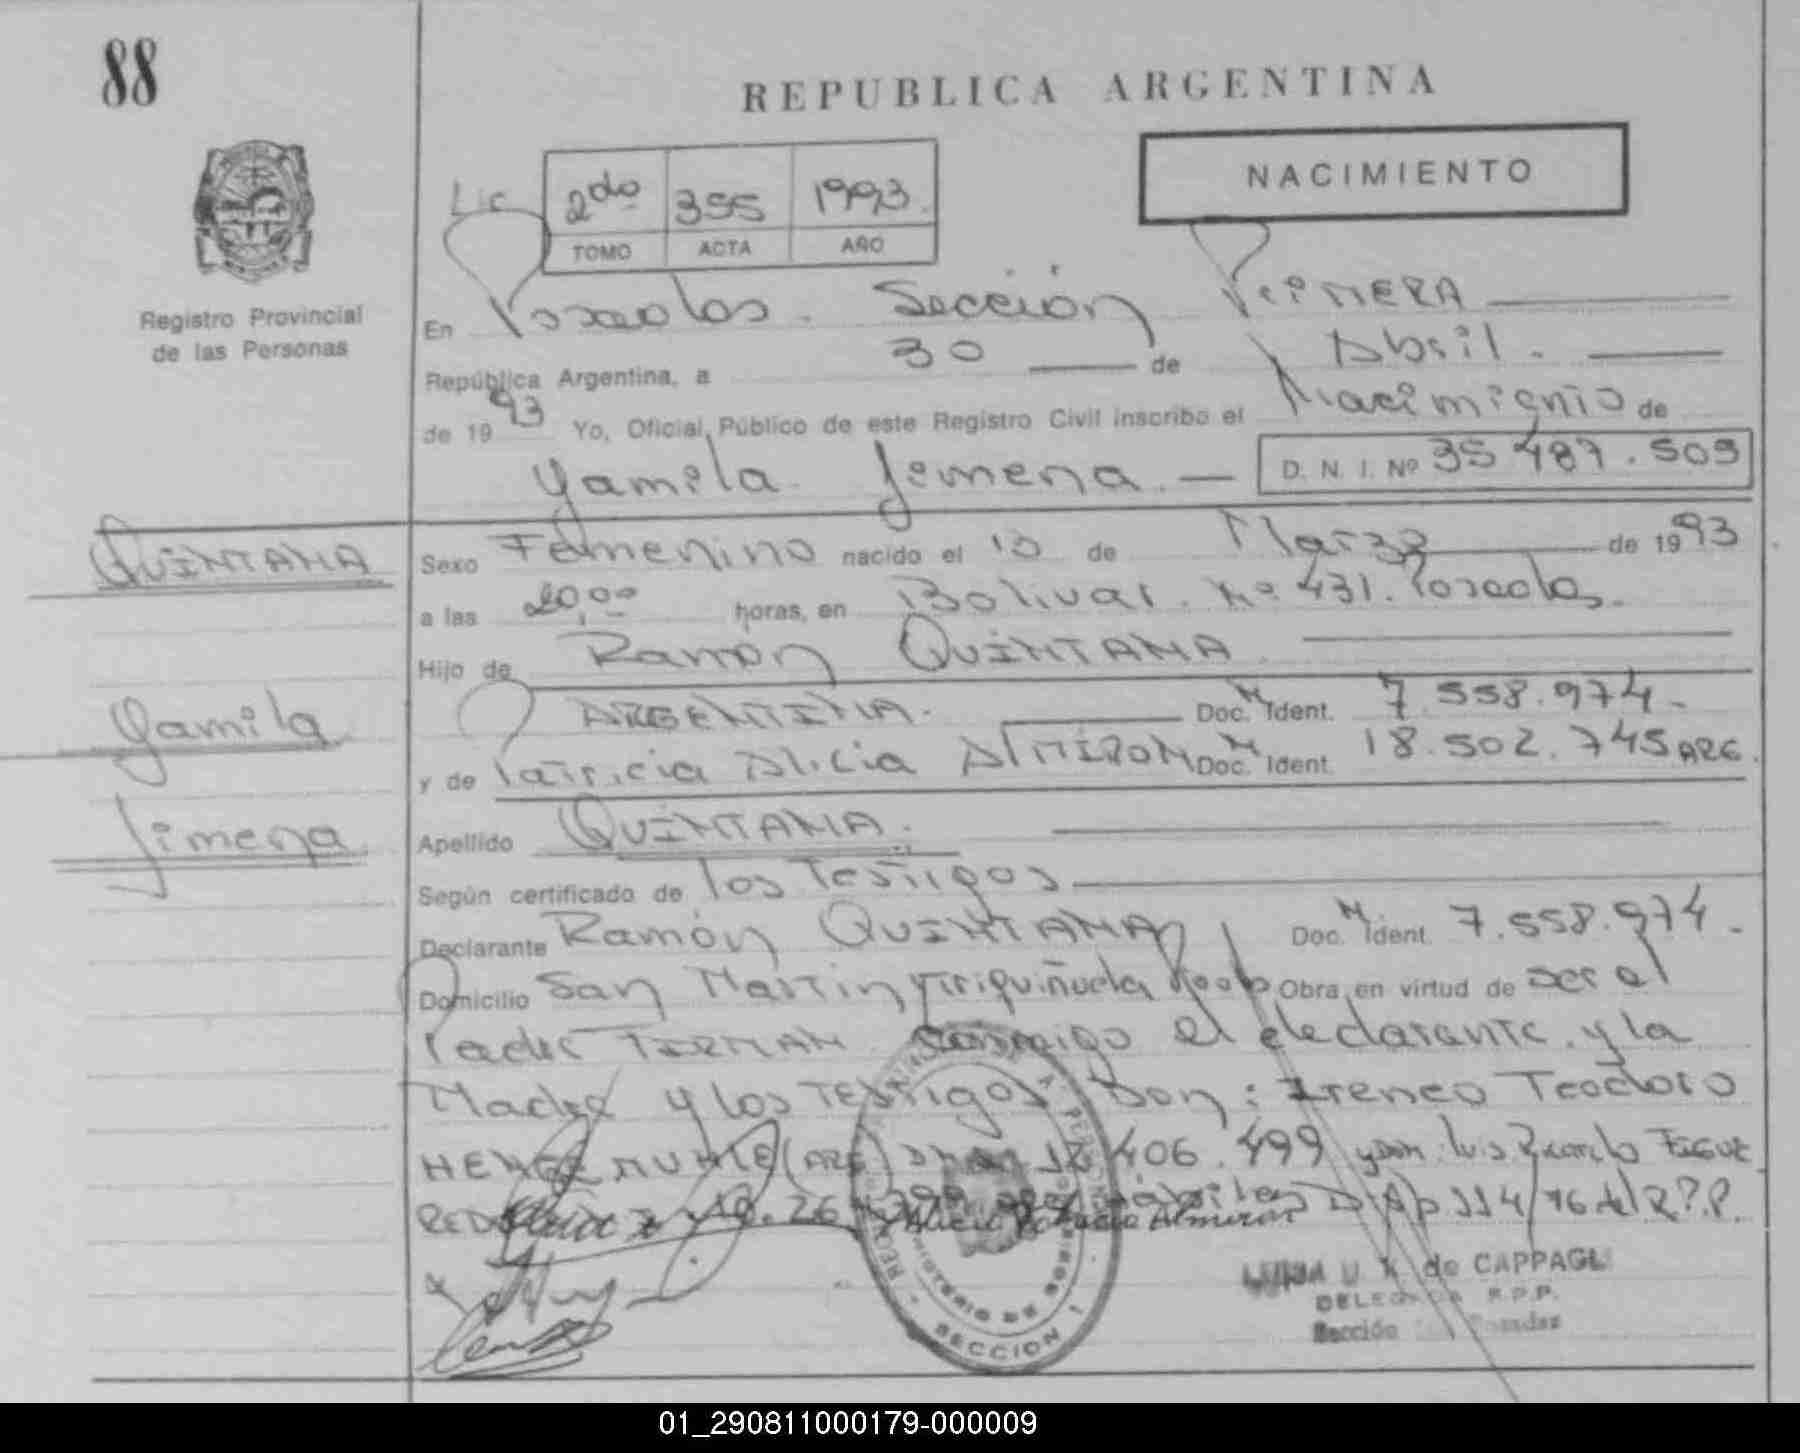 88
REPUBLICA ARGENTINA
NACIMIENTO
Lic
2do 355 1993
TOMO ACTA AÑO
Registro Provincial
de las Personas
En Posadas. Sección PriMERA
República Argentina, a 30 de Abril.
de 1993 Yo, Oficial Público de este Registro Civil inscribo el Nacimiento de
Yamila Jimena. D. N. I. Nº 35 487.509
QUINTANA
Sexo Femenino nacido el 10 de Marzo de 1993
a las 20,00 horas, en Bolivar. Nº 431. Posadas.
Hijo de Ramón QUINTANA
Yamila
ARGENTINA. Doc. M Ident. 7.558.974.-
y de Patricia Alicia AlMIRON Doc. M Ident. 18.502.745 ARG.
Jimena
Apellido QUINTANA.
Según certificado de los Testigos
Declarante Ramón QUINTANA Doc. M Ident. 7.558.974.-
Domicilio San Martin y Obra en virtud de ser el
Padre FIRMAN Conmigo el declarante y la
Madre y los Testigos Don: Ireneo Teodoro
(ARG) 406.499 y don Luis
REDO
Alicia Patricia Almiron
de CAPPAGLI
DELEGADA R.P.P.
Sección Posadas
MINISTERIO DE GOBIERNO
SECCION 1
01_290811000179-000009